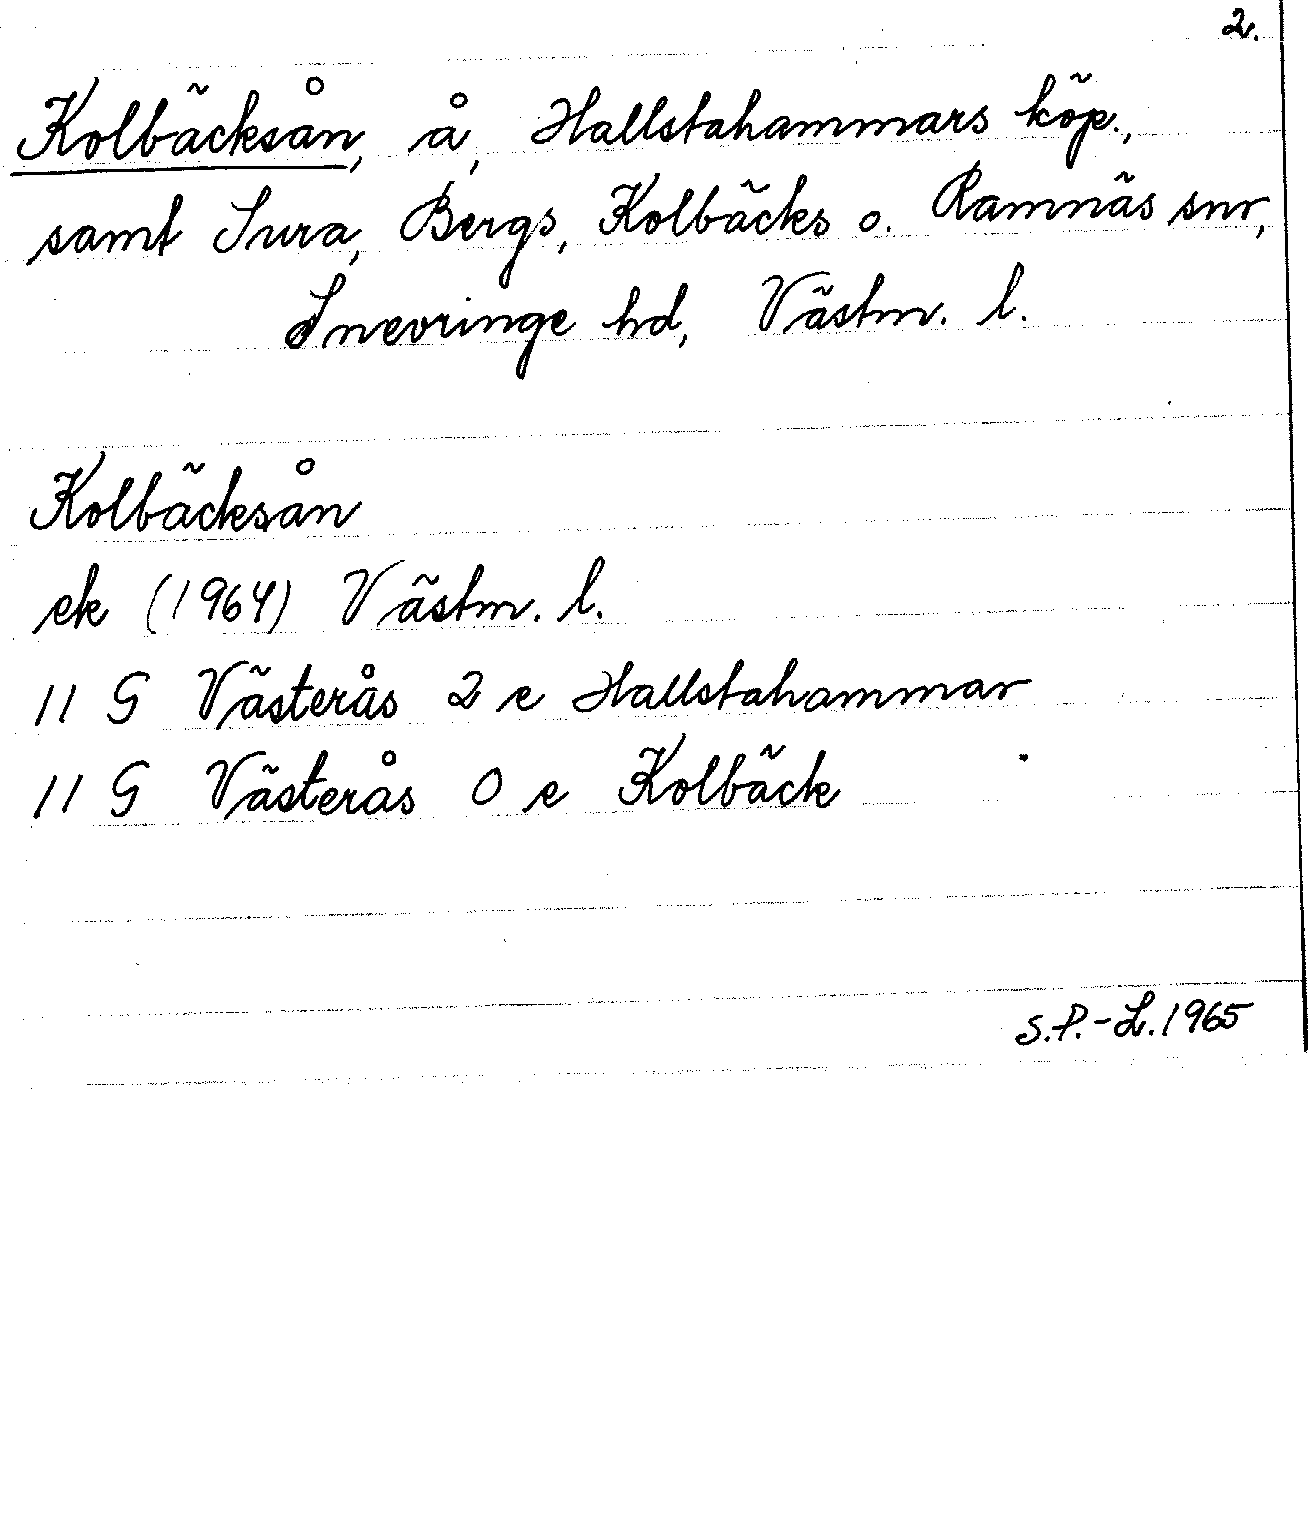 2.
Kolbäcksån, å, Hallstahammars köp.,
samt Sura, Bergs, Kolbäcks o. Ramnäs snr,
Snevringe hd, Västm. l.
Kolbäcksån
ek (1964) Västm. l.
11 G Västerås 2 e Hallstahammar
11 G Västerås 0 e Kolbäck
S.P.-L. 1965